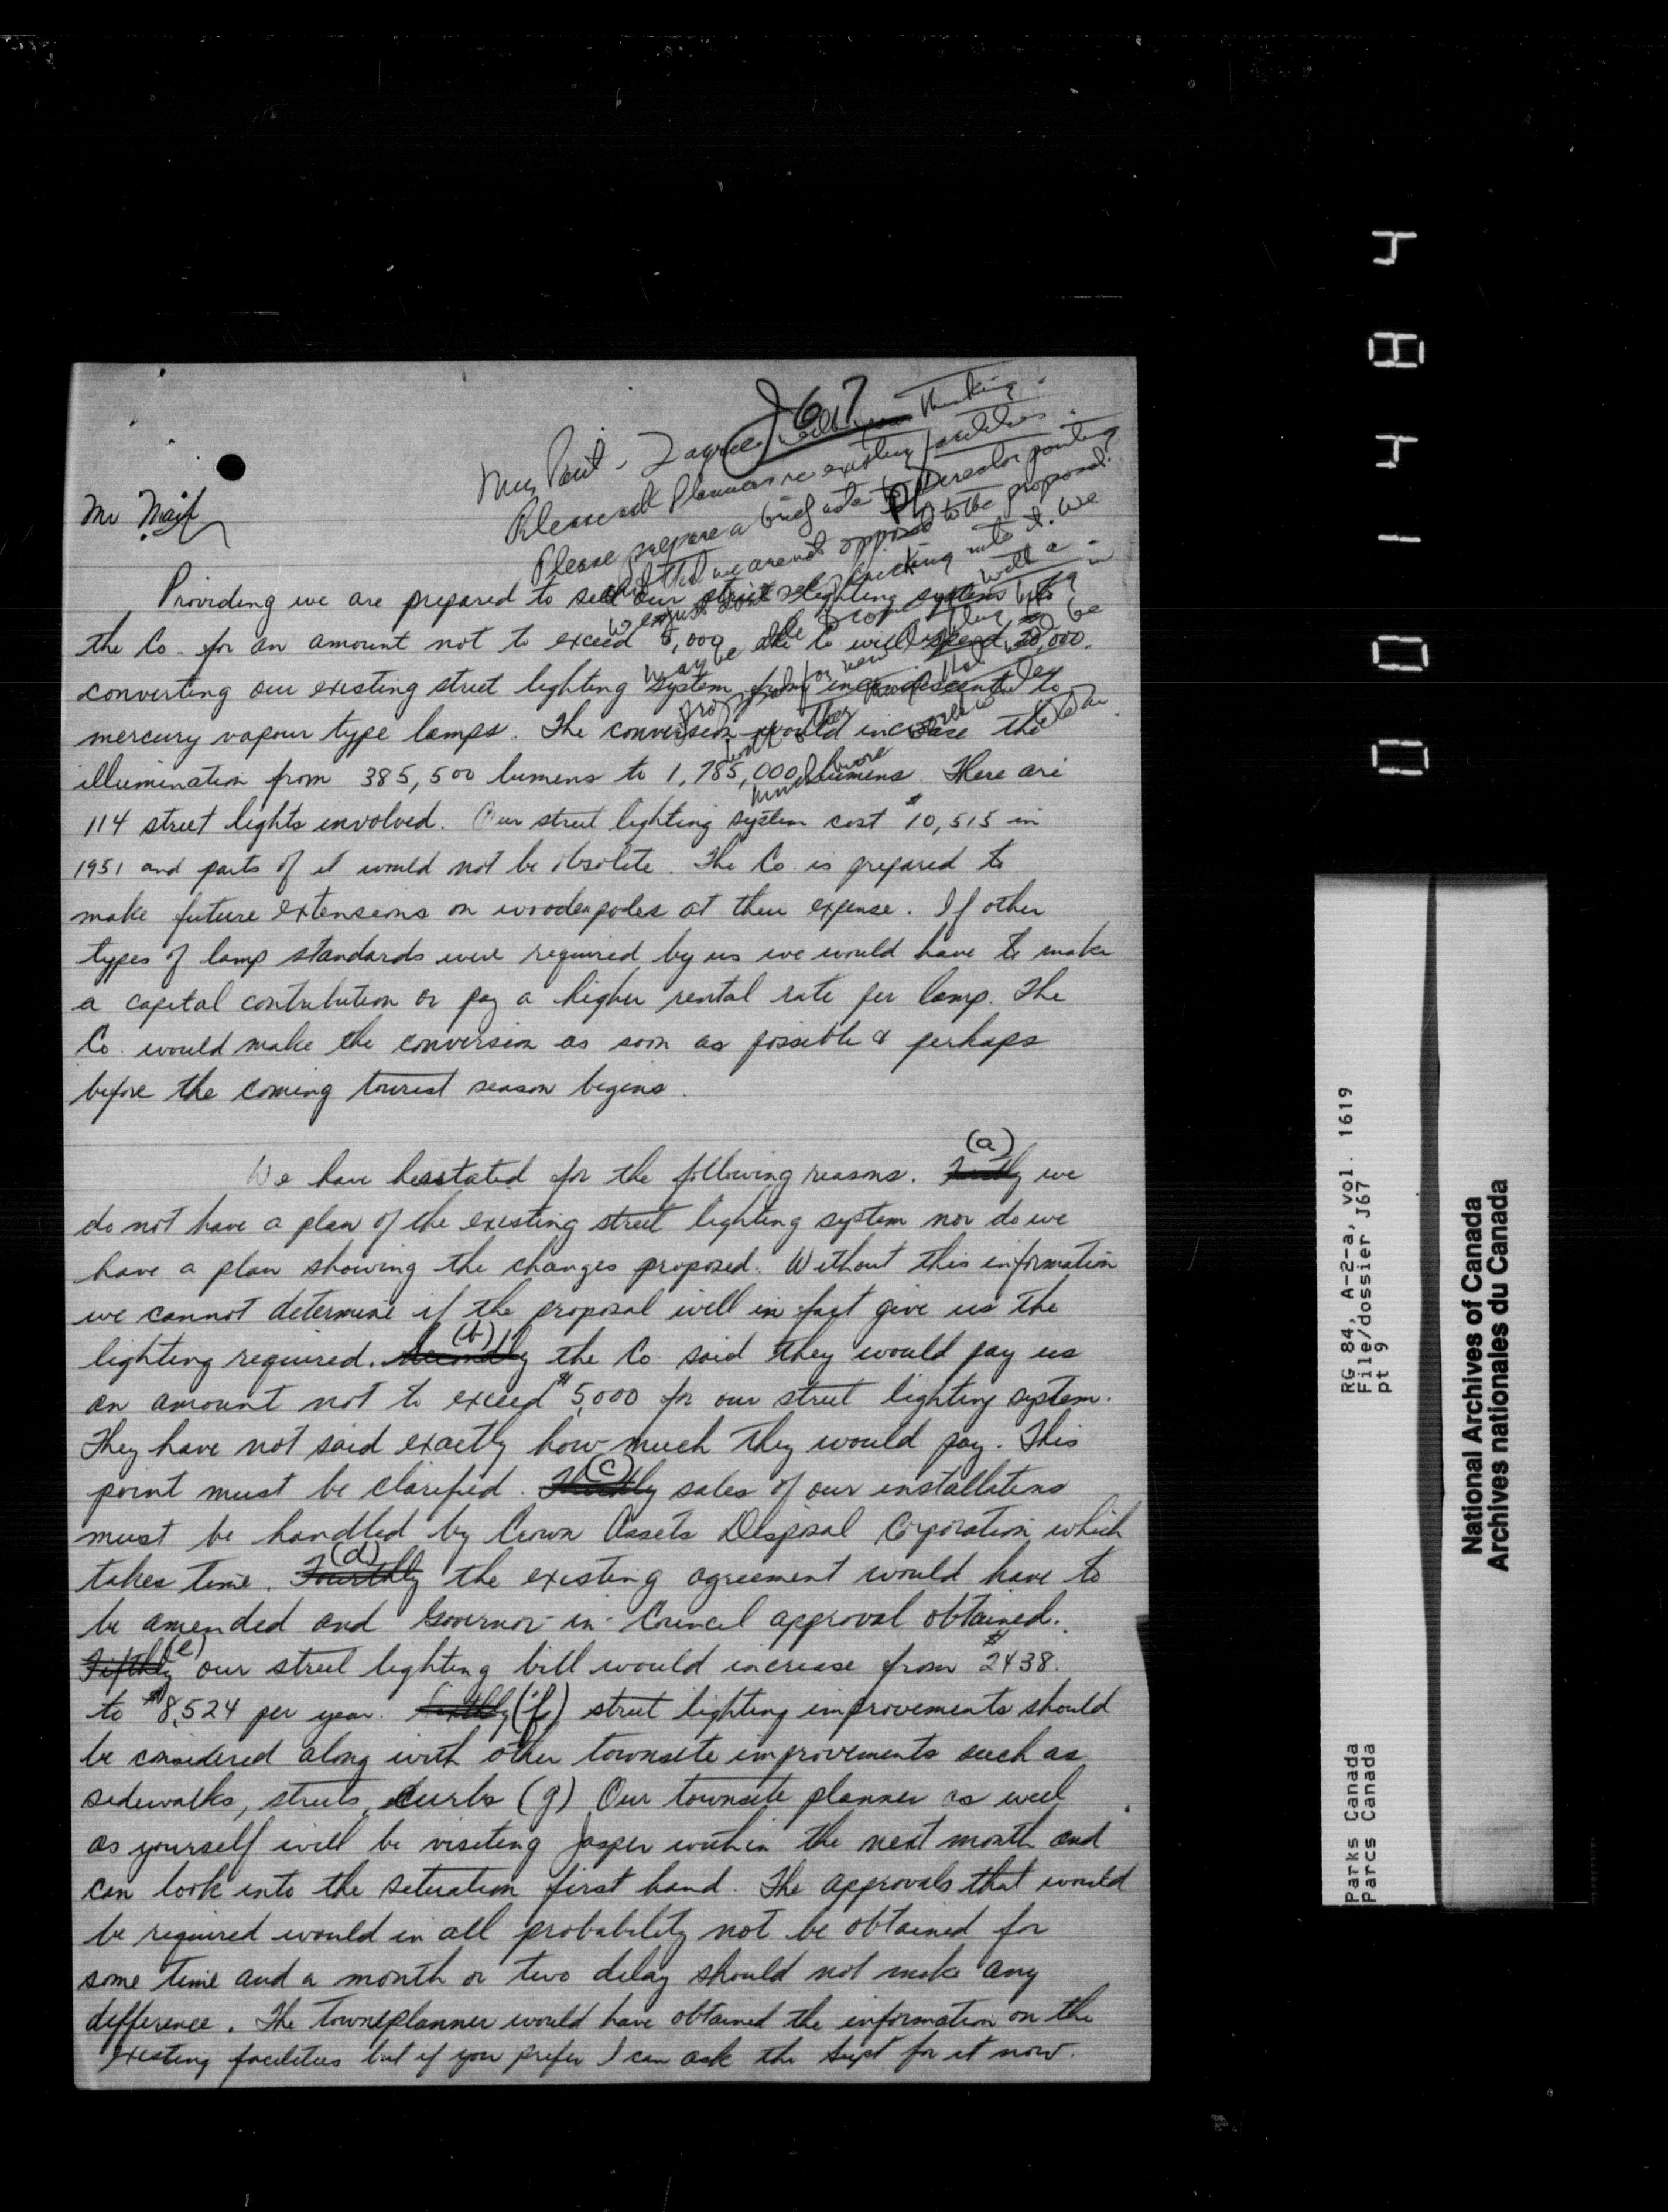 J67
Mr. Nash
I agree with your thinking.
Please ask Planners re existing facilities.
Please prepare a brief note to Director pointing
out that we are not opposed to the proposal.
checking into it. We
may be
much more
Providing we are prepared to sell our street lighting system to
the Co. for an amount not to exceed 5,000 the Co will spend 20,000.
converting our existing street lighting system from incandescent to
mercury vapour type lamps. The conversion would increase the
illumination from 385,500 lumens to 1,785,000 lumens. There are
114 street lights involved. Our street lighting system cost $10,515 in
1951 and parts of it would not be obsolete. The Co. is prepared to
make future extensions on wooden poles at their expense. If other
types of lamp standards were required by us we would have to make
a capital contribution or pay a higher rental rate per lamp. The
Co. would make the conversion as soon as possible & perhaps
before the coming tourist season begins.
We have hesitated for the following reasons. (a) Firstly we
do not have a plan of the existing street lighting system nor do we
have a plan showing the changes proposed. Without this information
we cannot determine if the proposal will in fact give us the
lighting required. (b) Secondly the Co. said they would pay us
an amount not to exceed $5,000 for our street lighting system.
They have not said exactly how much they would pay. This
point must be clarified. (c) Thirdly sales of our installations
must be handled by Crown Assets Disposal Corporation which
takes time. (d) Fourthly the existing agreement would have to
be amended and Governor-in-Council approval obtained.
Fifthly (e) our street lighting bill would increase from $2438.
to $8,524 per year. Sixthly (f) street lighting improvements should
be considered along with other townsite improvements such as
sidewalks, streets, curbs (g) Our townsite planner as well
as yourself will be visiting Jasper within the next month and
can look into the situation first hand. The approvals that would
be required would in all probability not be obtained for
some time and a month or two delay should not make any
difference. The townplanner would have obtained the information on the
existing facilities but if you prefer I can ask the Supt for it now.
RG 84, A-2-a, vol. 1619
File/dossier J67
pt 9
Parks Canada
Parcs Canada
National Archives of Canada
Archives nationales du Canada